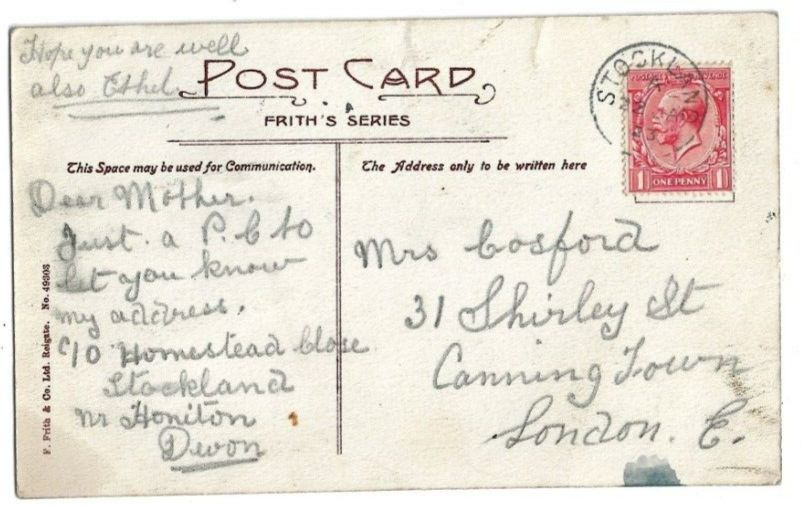 Hope you are well
also Ethel.
POST CARD
FRITH'S SERIES
This Space may be used for Communication.
The Address only to be written here
Dear Mother.
Just a P.C to
let you know
my address,
c/o Homestead Close
Stockland
nr Honiton
Devon
Mrs Cosford
31 Shirley St
Canning Town
London. E.
F. Frith & Co. Ltd. Reigate. No. 49308
STOCKLAN
1 ONE PENNY 1